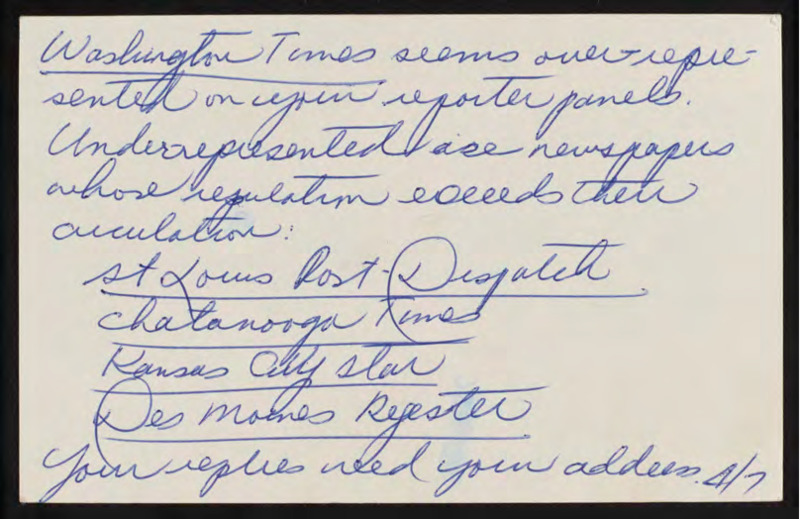 Washington Times seems over-repre-
sented on your reporter panels.
Underrepresented are newspapers
whose reputation exceeds their
circulation:
St Louis Post-Dispatch
Chatanooga Times
Kansas City Star
Des Moines Register
Your replies need your address. 4/7